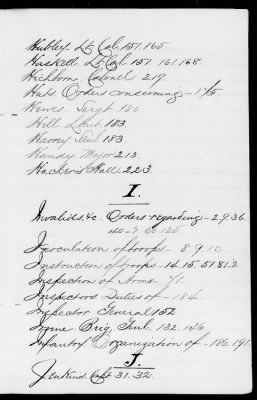 Hubley Lt Col. 157. 165
Haskell. Lt Col. 157. 161. 168
Hichborn Colonel 219.
Hats Orders concerning - 175.
Hewes Sergt 180
Hill Lieut. 183.
Harvey 183
Handy Major 213.
Hacker's Hall 223.
I.
Invalids, &c. Orders regarding - 29. 36.
Inoculation of troops - 8. 9. 10
Instruction of troops - 14. 15. 57. 81. 2.
Inspection of Arms 71.
Inspectors Duties of - 184.
Inspector General 152
Irvine Brig. Genl. 132. 146.
Infantry Organization of - 186. 191.
J.
Jenkins. Capt 31. 32.